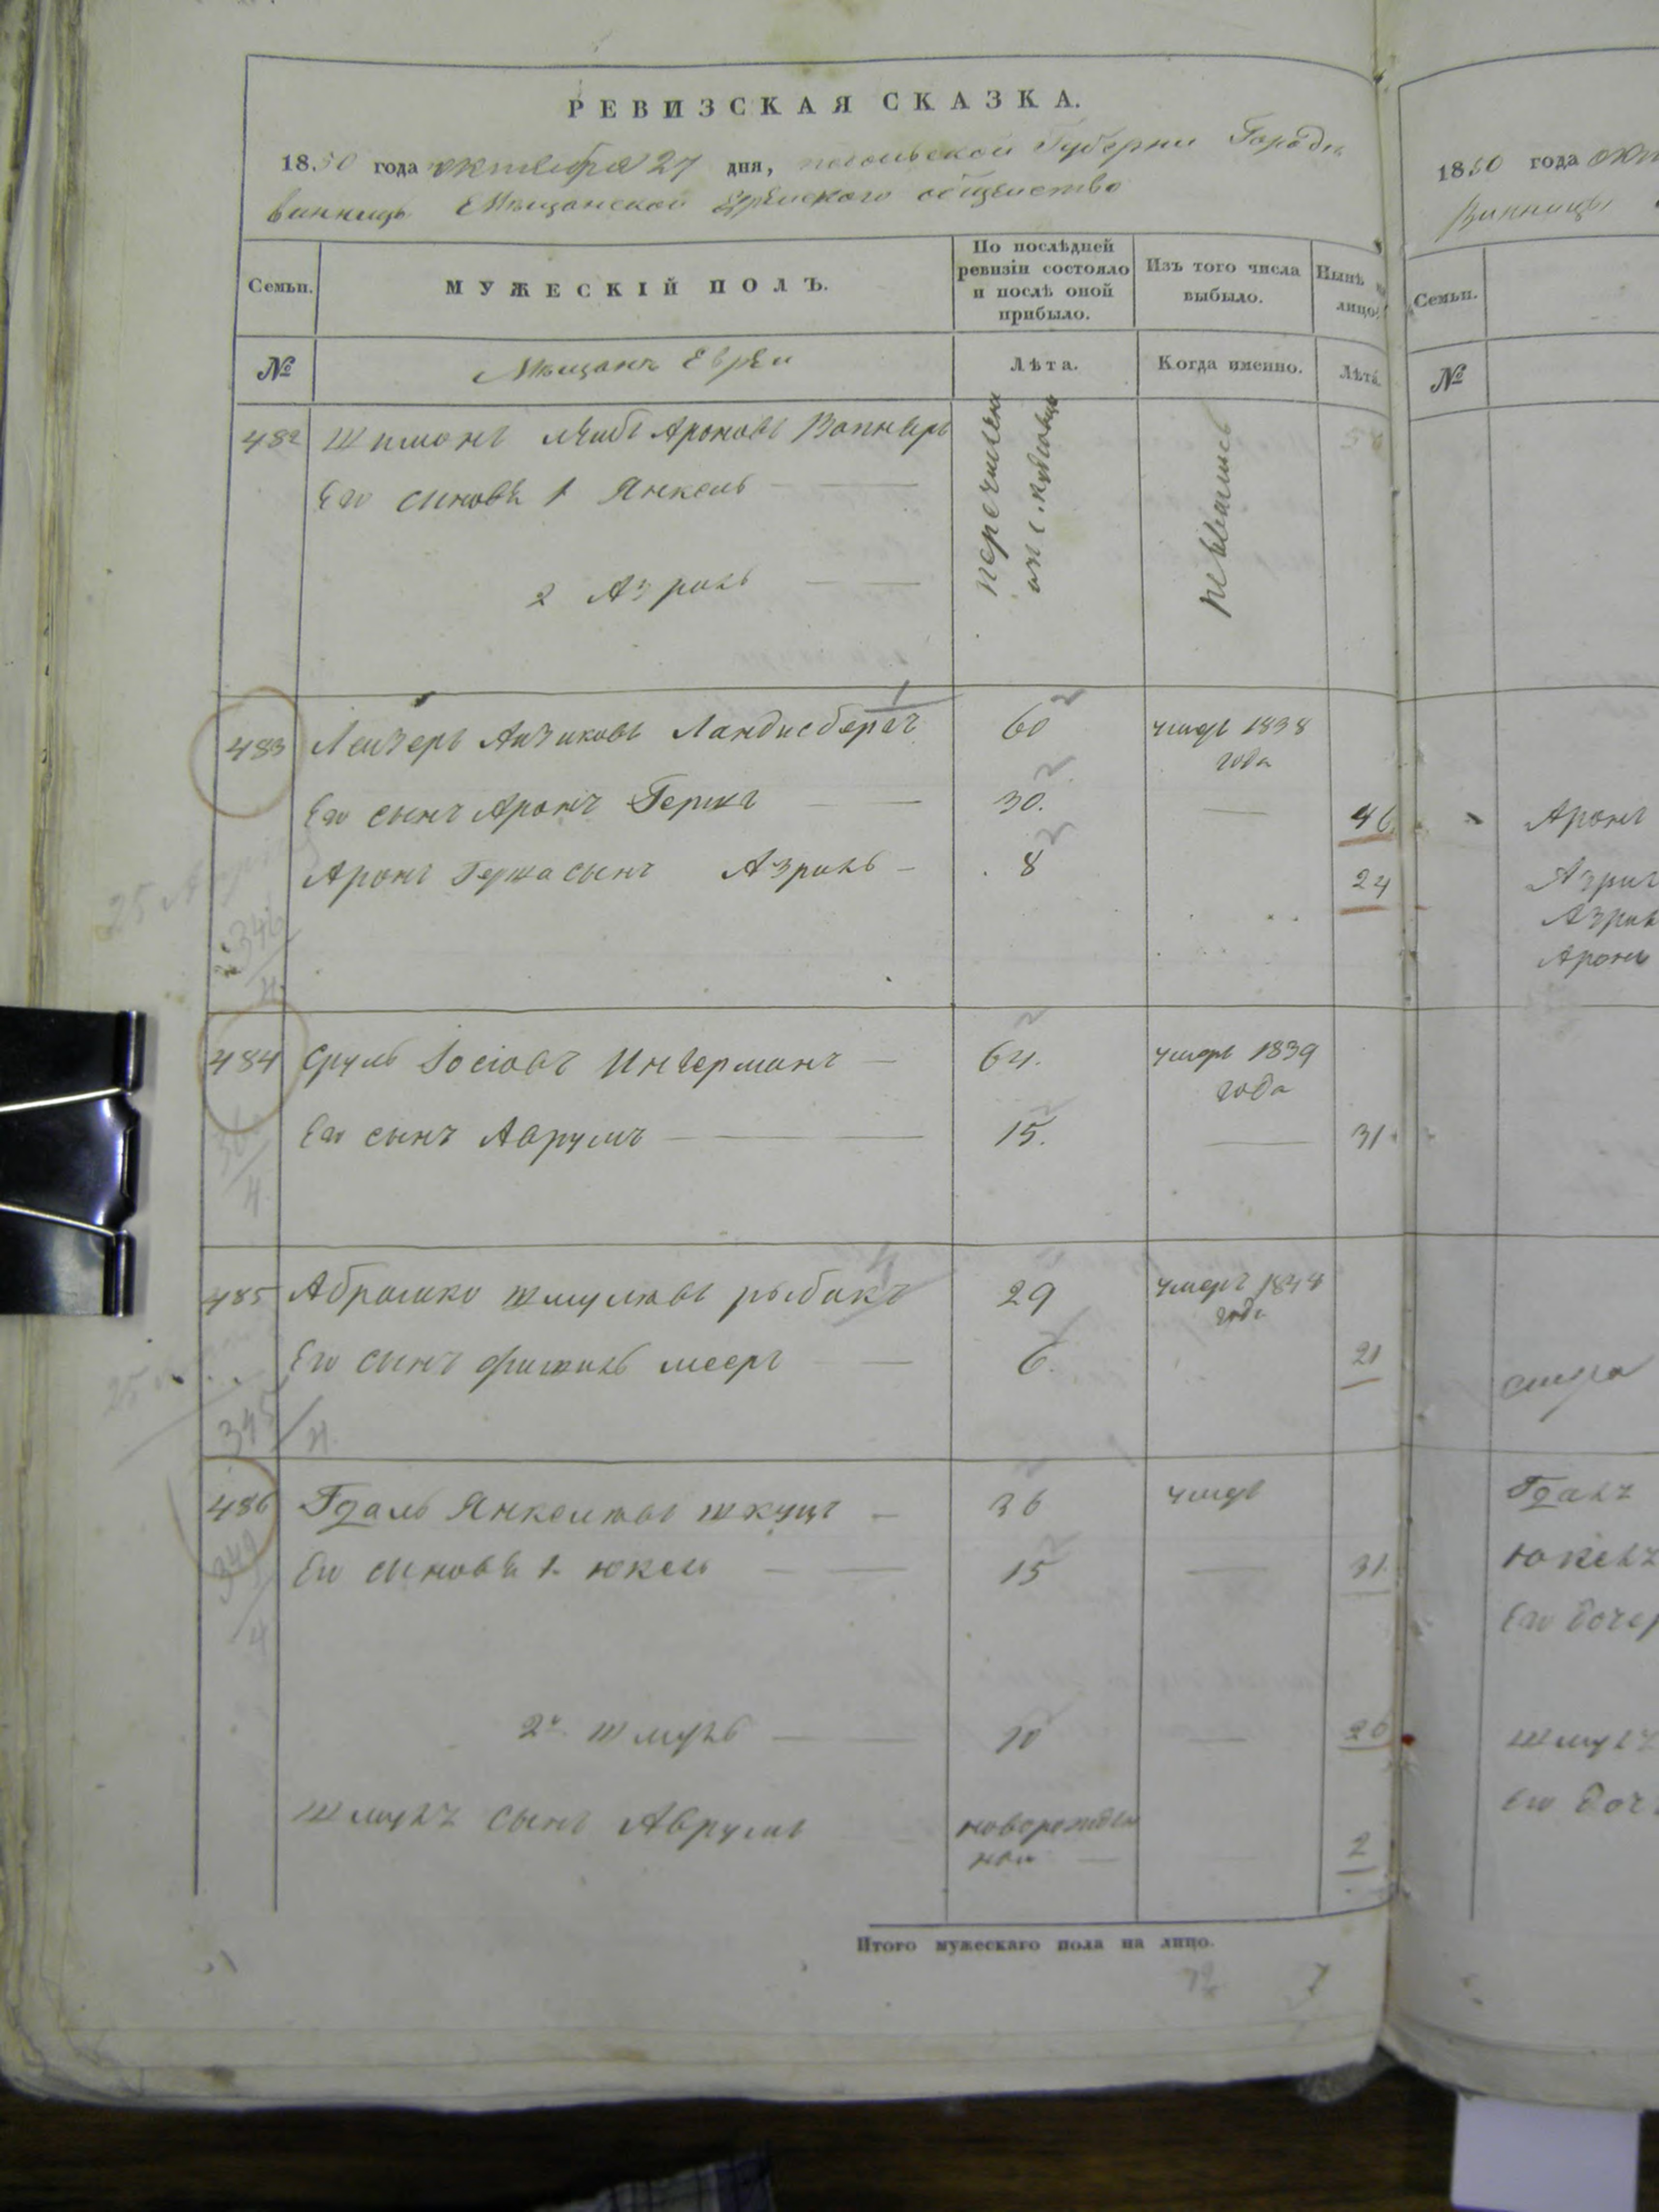 РЕВИЗСКАЯ СКАЗКА.
1850 года октября 27 дня, подольской Губерни Города
винницы Мѣщанской Еврейского общества
Семьи.
МУЖЕСКІЙ ПОЛЪ.
По послѣдней ревизіи состояло и послѣ оной прибыло.
Изъ того числа выбыло.
Нынѣ на лицо.
№
Мѣщанъ Евреи
Лѣта.
Когда именно.
Лѣта.
482 Шимонъ Лейбъ Ароновъ
Его синовѣ 1 Янкель
2 Азриль
перечислен
483 Лейзеръ Айзиковъ Ландисбергъ 60 умеръ 1838
года
Его сынъ Аронъ Гершъ 30. 46
Аронъ Герша сынъ Азриль 8 24
346
484 Сруль Іосіовъ Инверманъ 64. умеръ 1839
года
Его сынъ Аврумъ 15. 31
485 Абрашко Шмулювъ рыбакъ 29 умеръ 1848
года
Его сынъ Фишиль мееръ 6. 21
345/4
486 Гдаль Янкелювъ шкуцъ 36 умеръ
Его синовѣ 1. Юкель 15 31.
2й Шмуль 10 26
Шмуль сынъ Аврумъ новорожден
ной 2
Итого мужескаго пола на лицо.
7
1850 года окт
Винницы
Семьи.
№
Аронъ
Азрил
Азрил
Арона
Гдаль
Юкель
Его дочер
Шмуль
Его доч